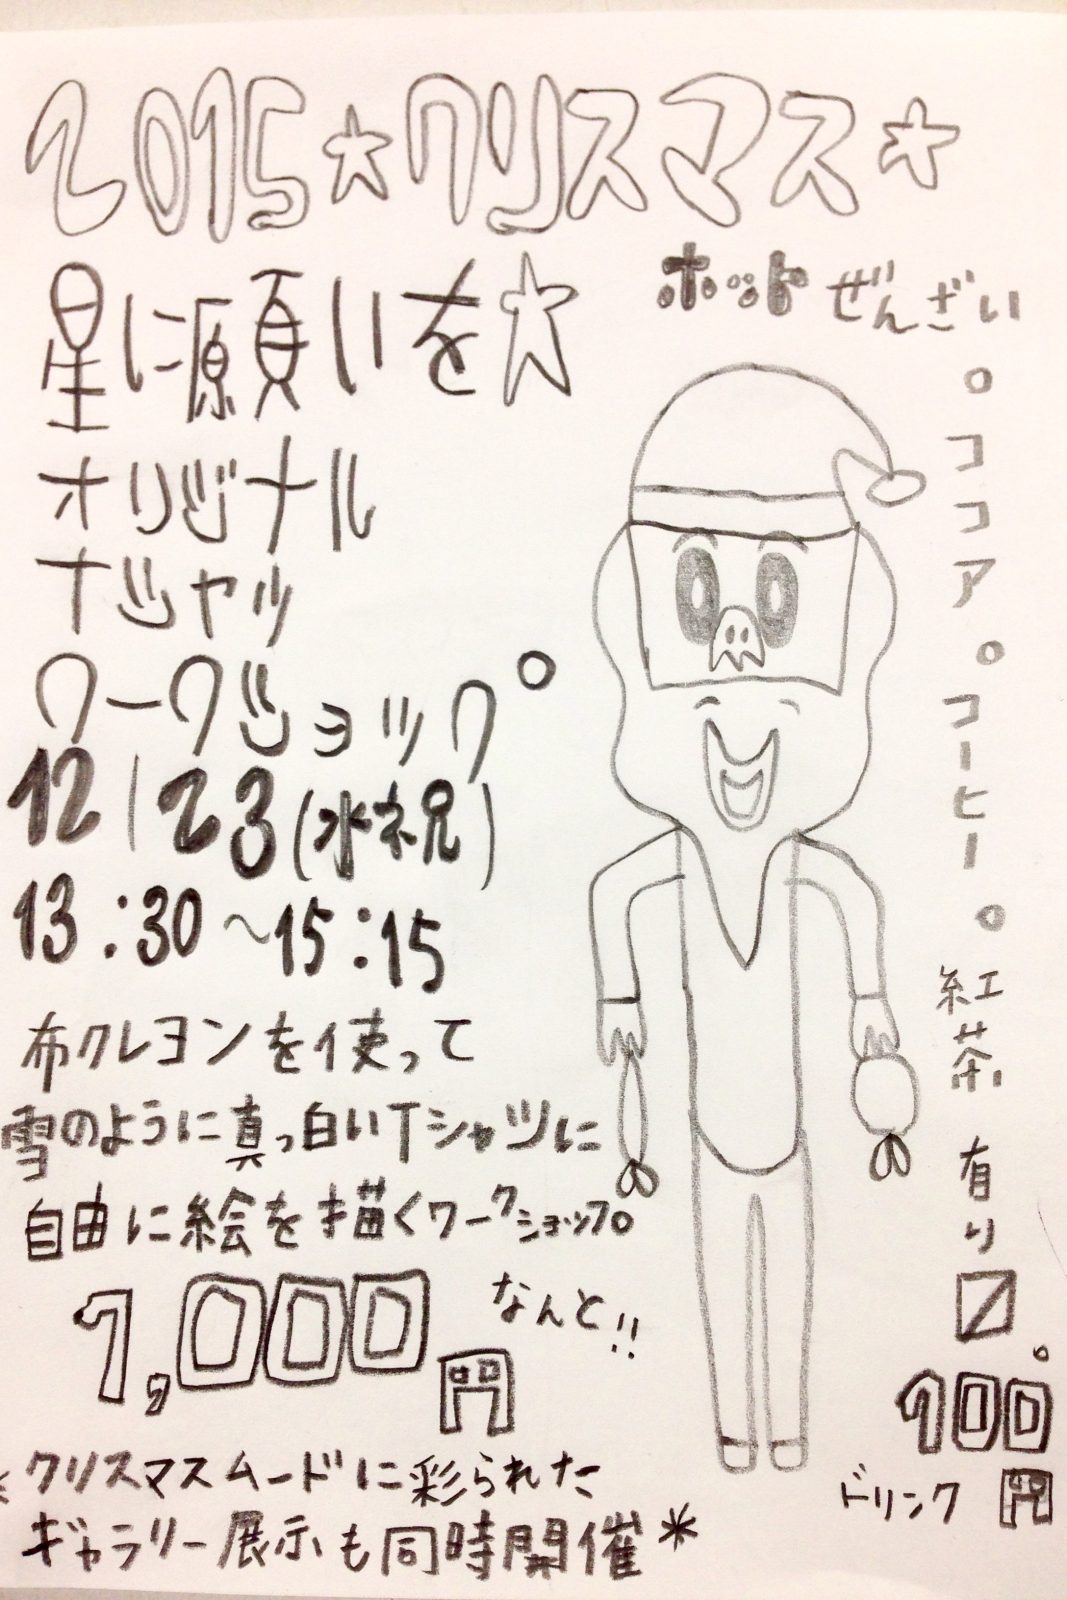 2015☆クリスマス☆
星に願いを☆
オリジナル
ナジャツ
ワークショップ
12/23(水祝)
13:30〜15:15
布クレヨンを使って
雪のように真っ白いTシャツに
自由に絵を描くワークショップ。
1,000円
なんと!!
*クリスマスムードに彩られた
ギャラリー展示も同時開催*
ホットぜんざい
。ココア。コーヒー。紅茶 有り
100円
ドリンク